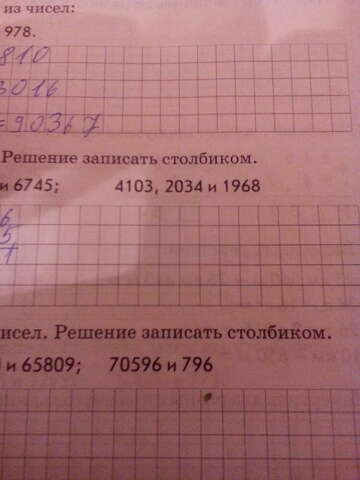 из чисел:
978.
810
3016
=90367
Решение записать столбиком.
и 6745; 4103, 2034 и 1968
6
5
1
исел. Решение записать столбиком.
и 65809; 70596 и 796